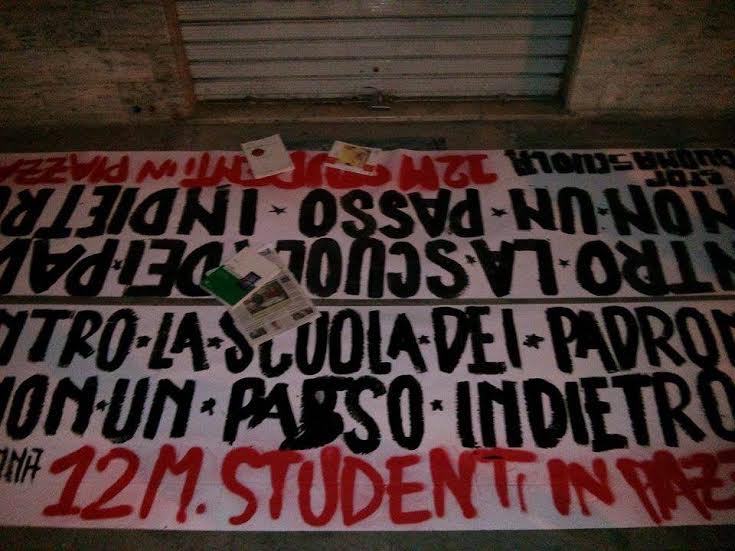 NTRO · LA · SCUOLA · DEI · PAD
NON · UN · PASSO · INDIETRO
STOP
BUONA SCUOLA
12M STUDENTI IN PIAZZA
NTRO · LA · SCUOLA · DEI · PADRON
NON · UN · PASSO · INDIETRO
12M. STUDENTI IN PIAZZ